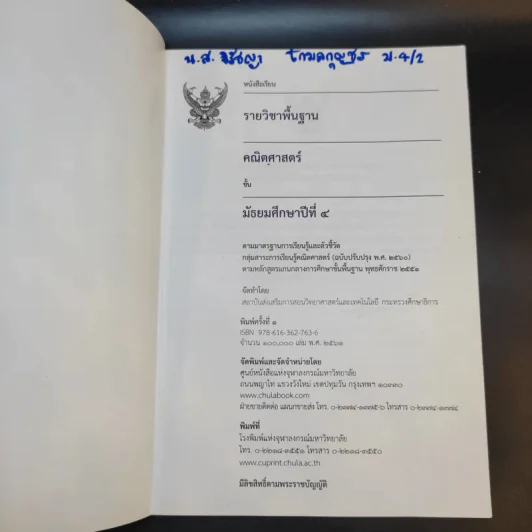 น.ส. โกมลกุญชร ม.4/2
หนังสือเรียน
รายวิชาพื้นฐาน
คณิตศาสตร์
ชั้น
มัธยมศึกษาปีที่ ๔
ตามมาตรฐานการเรียนรู้และตัวชี้วัด
กลุ่มสาระการเรียนรู้คณิตศาสตร์ (ฉบับปรับปรุง พ.ศ. ๒๕๖๐)
ตามหลักสูตรแกนกลางการศึกษาขั้นพื้นฐาน พุทธศักราช ๒๕๕๑
จัดทำโดย
สถาบันส่งเสริมการสอนวิทยาศาสตร์และเทคโนโลยี กระทรวงศึกษาธิการ
พิมพ์ครั้งที่ ๑
ISBN 978-616-362-763-6
จำนวน ๑๐๐,๐๐๐ เล่ม พ.ศ. ๒๕๖๑
จัดพิมพ์และจัดจำหน่ายโดย
ศูนย์หนังสือแห่งจุฬาลงกรณ์มหาวิทยาลัย
ถนนพญาไท แขวงวังใหม่ เขตปทุมวัน กรุงเทพฯ ๑๐๓๓๐
www.chulabook.com
ฝ่ายขายติดต่อ แผนกขายส่ง โทร. ๐-๒๓๗๔-๑๓๗๕-๖ โทรสาร ๐-๒๓๗๔-๑๓๗๔
พิมพ์ที่
โรงพิมพ์แห่งจุฬาลงกรณ์มหาวิทยาลัย
โทร. ๐-๒๒๑๘-๓๕๕๑ โทรสาร ๐-๒๒๑๘-๓๕๕๐
www.cuprint.chula.ac.th
มีลิขสิทธิ์ตามพระราชบัญญัติ